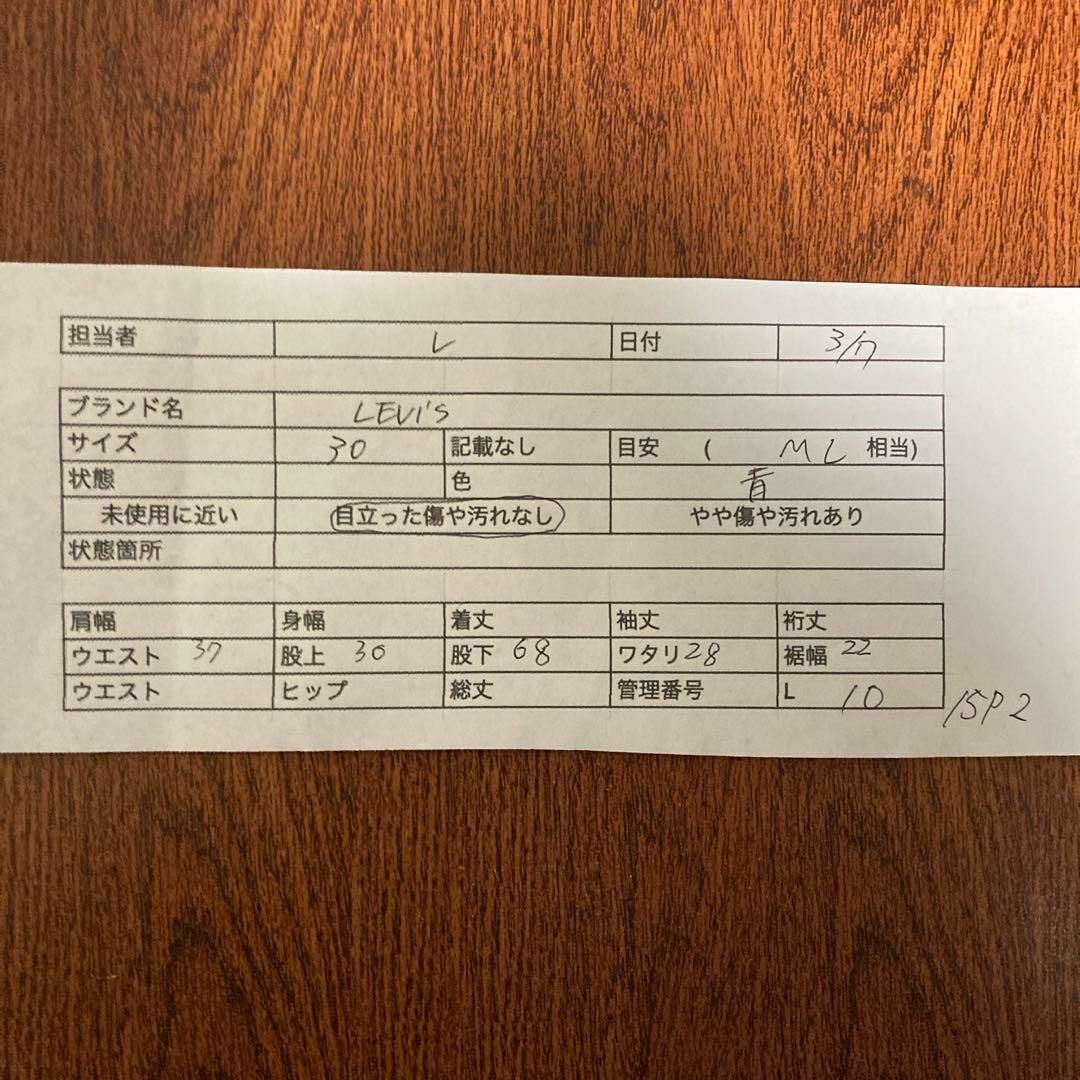 担当者 L 日付 3/7
ブランド名 LEVI'S
サイズ 30 記載なし 目安 ( ML 相当)
状態 色 青
未使用に近い 目立った傷や汚れなし やや傷や汚れあり
状態箇所
肩幅 身幅 着丈 袖丈 裄丈
ウエスト 37 股上 30 股下 68 ワタリ 28 裾幅 22
ウエスト ヒップ 総丈 管理番号 L 10 15P2